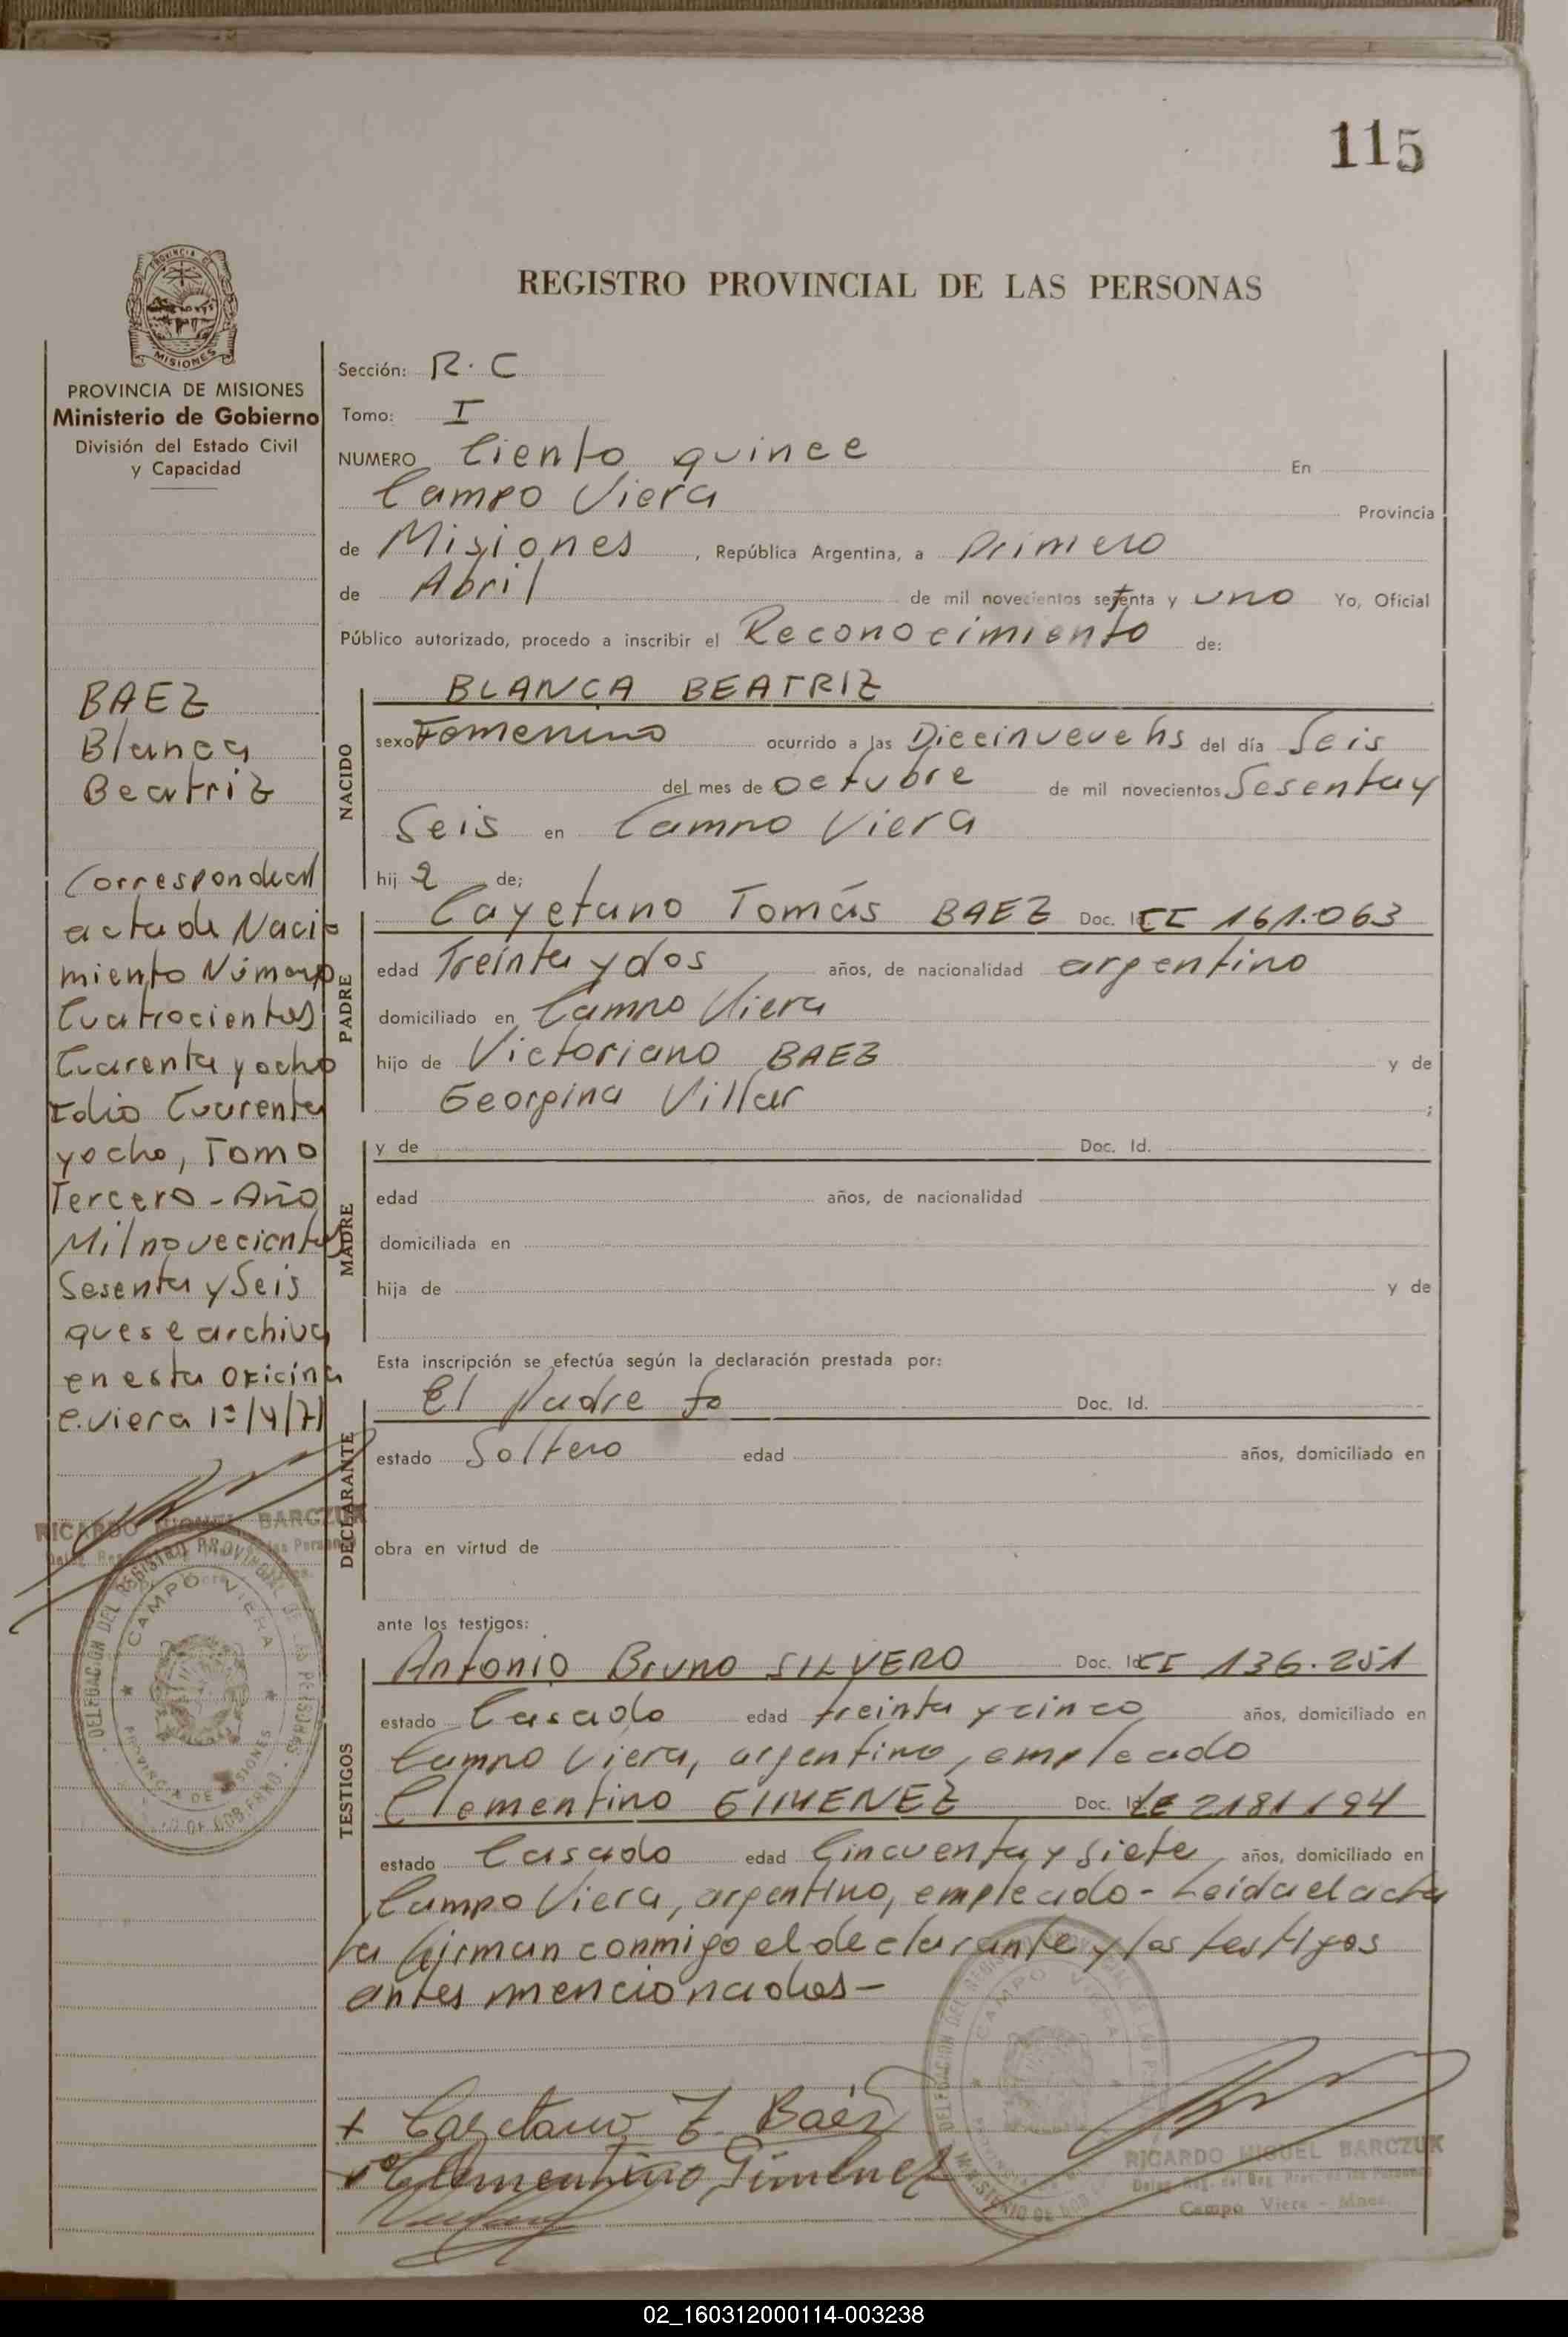 115
REGISTRO PROVINCIAL DE LAS PERSONAS
MISIONES
PROVINCIA DE MISIONES
Ministerio de Gobierno
División del Estado Civil
y Capacidad
BAEZ
Blanca
Beatriz
Corresponde al
acta de Naci
miento Número
Cuatrocientos
Cuarenta y ocho
Folio Cuarenta
y ocho, Tomo
Tercero - Año
Mil novecientos
Sesenta y Seis
que se archiva
en esta Oficina
C. Viera 1º/4/71
RICARDO MIGUEL BARCZUK
DELEGACION DEL REGISTRO PROVINCIAL DE LAS PERSONAS
CAMPO VIERA
PROVINCIA DE MISIONES
Sección: R. C
Tomo: I
NUMERO Ciento quince En
Campo Viera Provincia
de Misiones, República Argentina, a primero
de Abril de mil novecientos setenta y uno Yo, Oficial
Público autorizado, procedo a inscribir el Reconocimiento de:
NACIDO
BLANCA BEATRIZ
sexo Femenino ocurrido a las Diecinueve hs del día Seis
del mes de octubre de mil novecientos Sesenta y
Seis en Campo Viera
hij a de;
PADRE
Cayetano Tomás BAEZ Doc. Id. CI 161.063
edad Treinta y dos años, de nacionalidad argentino
domiciliado en Campo Viera
hijo de Victoriano BAEZ y de
Georgina Villar ;
MADRE
y de Doc. Id.
edad años, de nacionalidad
domiciliada en
hija de y de
Esta inscripción se efectúa según la declaración prestada por:
DECLARANTE
El padre Doc. Id.
estado Soltero edad años, domiciliado en
obra en virtud de
ante los testigos:
TESTIGOS
Antonio Bruno SILVERO Doc. Id. CI 136.251
estado Casado edad treinta y cinco años, domiciliado en
Campo Viera, argentino, empleado
Clementino GIMENEZ Doc. Id. LE 2181194
estado Casado edad Cincuenta y siete años, domiciliado en
Campo Viera, argentino, empleado - Leida el acta
la firman conmigo el declarante y los testigos
antes mencionados -
+ Cayetano T. Baéz
Clementino Gimenez
DELEGACION DEL REGISTRO
CAMPO VIERA
MINISTERIO DE GOB
RICARDO MIGUEL BARCZUK
Deleg. Reg. del Reg. Prov. de las Personas
Campo Viera - Mnes.
02_160312000114-003238